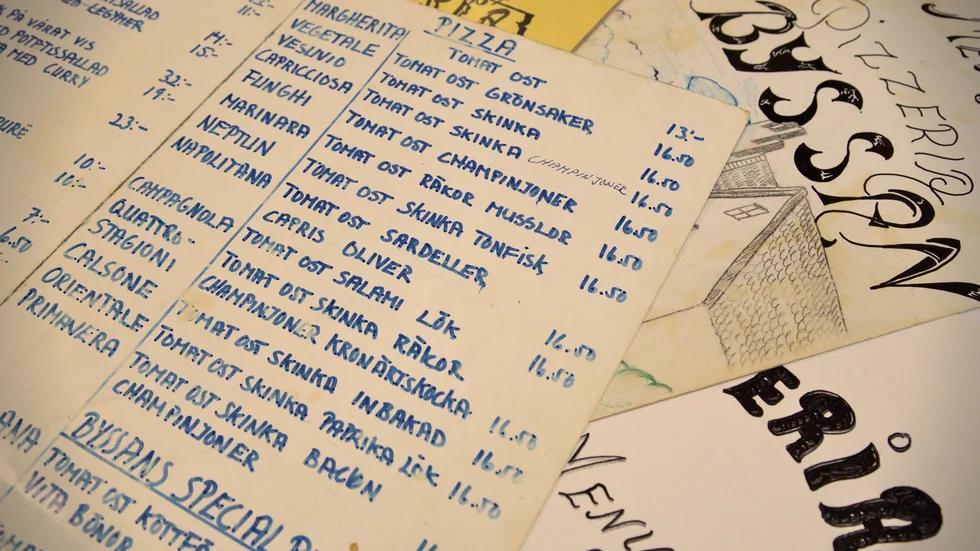 SALLAD
LEGYMER 11:-
K PÅ VÅRAT VIS
POTATISSALLAD 14:-
A MED CURRY 15:-
32:-
19:-
PURE 23:-
10:-
10:-
7:-
6.50
PIZZA
MARGHERITA TOMAT OST 13:-
VEGETALE TOMAT OST GRÖNSAKER 16.50
VESUVIO TOMAT OST SKINKA 16.50
CAPRICCIOSA TOMAT OST SKINKA CHAMPINJONER 16.50
FUNGHI TOMAT OST CHAMPINJONER 16.50
MARINARA TOMAT OST RÄKOR MUSSLOR 16.50
NEPTUN TOMAT OST SKINKA TONFISK 16.50
NAPOLITANA TOMAT OST SARDELLER,
CAPRIS OLIVER 16.50
CAMPAGNOLA TOMAT OST SALAMI LÖK 16.50
QUATTRO- TOMAT OST SKINKA RÄKOR
STAGIONI CHAMPINJONER KRONÄRTSKOCKA 16.50
CALSONE TOMAT OST SKINKA INBAKAD 16.50
ORIENTALE TOMAT OST SKINKA PAPRIKA LÖK 16.50
PRIMAVERA TOMAT OST SKINKA BACON
CHAMPINJONER
BYSSANS SPECIAL
ANA TOMAT OST KÖTTF
VITA BÖNOR
PIZZERIA
BYSSAN
ERIA
MENU